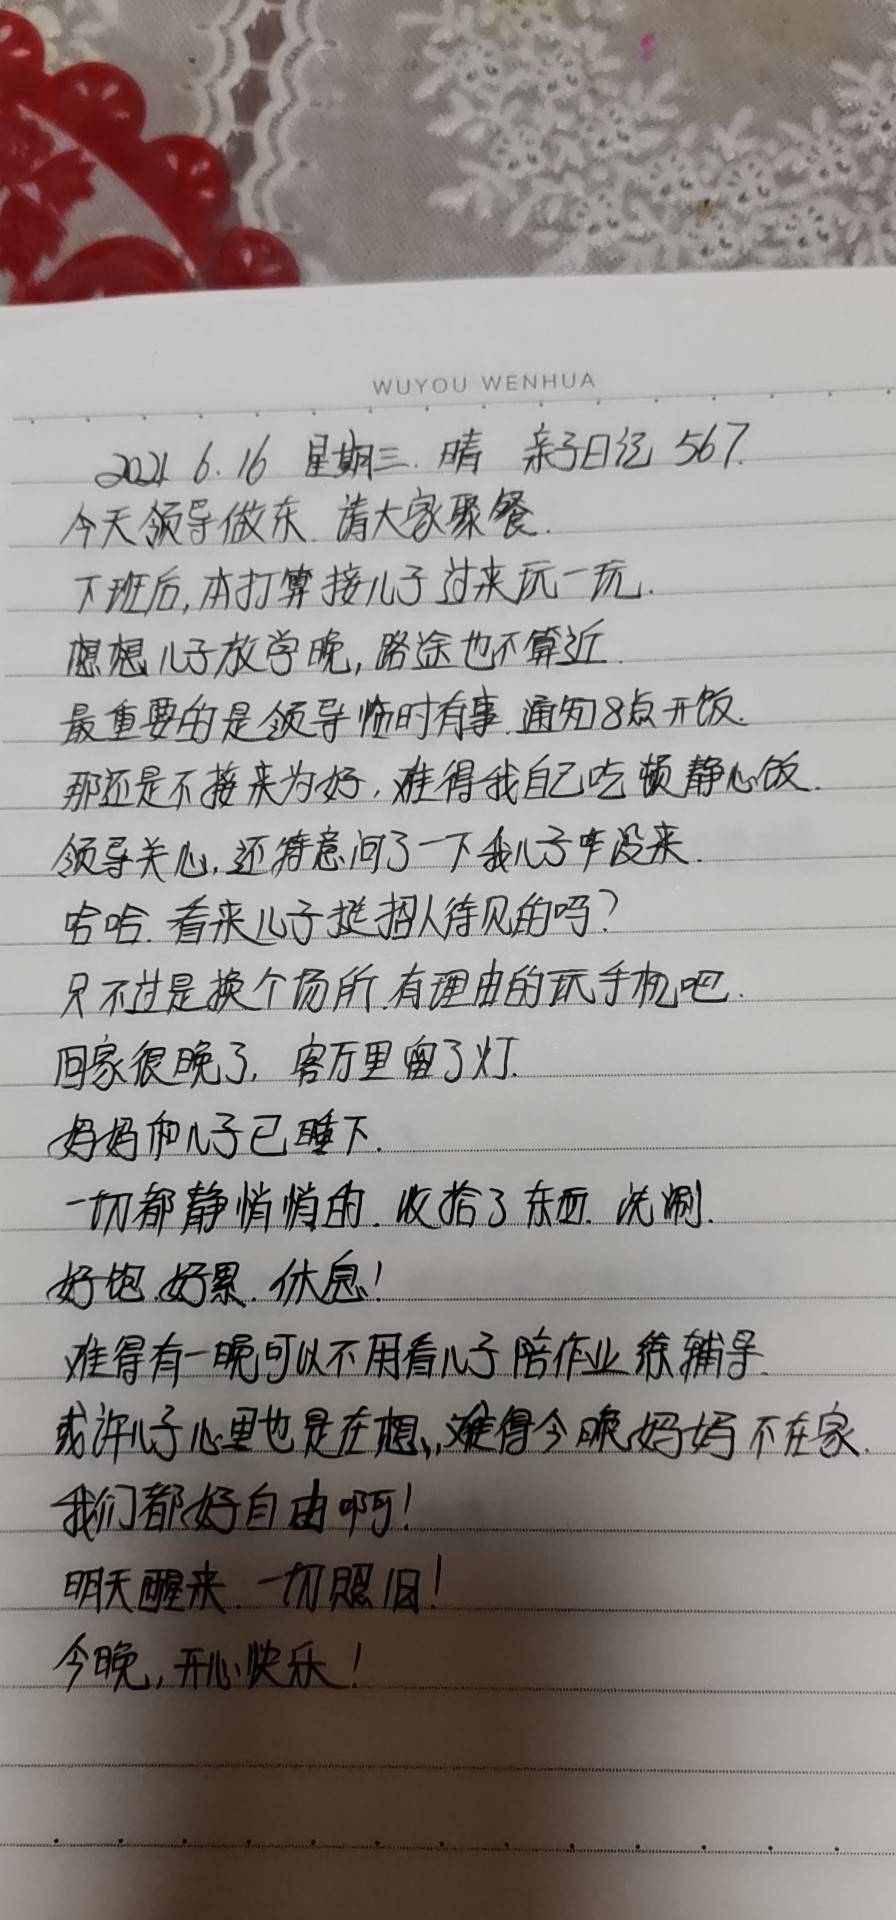 WUYOU WENHUA
2021 6.16 星期三. 晴 亲子日记 567.
今天领导做东. 请大家聚餐.
下班后,本打算接儿子过来玩一玩.
想想儿子放学晚,路途也不算近.
最重要的是领导临时有事.通知8点开饭.
那还是不接来为好,难得我自己吃顿静心饭.
领导关心,还特意问了一下我儿子咋没来.
哈哈.看来儿子挺招人待见的吗?
只不过是换个场所.有理由的玩手机吧.
回家很晚了,客厅里留了灯.
妈妈和儿子已睡下.
一切都静悄悄的.收拾了东西.洗涮.
好饱.好累.休息!
难得有一晚可以不用看儿子陪作业 辅导.
或许儿子心里也是在想,,难得今晚妈妈不在家.
我们都好自由啊!
明天醒来.一切照旧!
今晚,开心快乐!